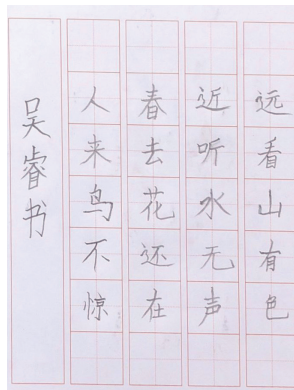 远看山有色
近听水无声
春去花还在
人来鸟不惊
吴睿书